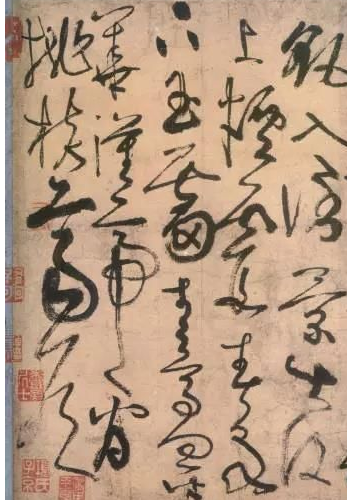 飖入倒景出没
上煙霞春泉
下玉霤青鳥向金
華漢帝看
桃核齊侯